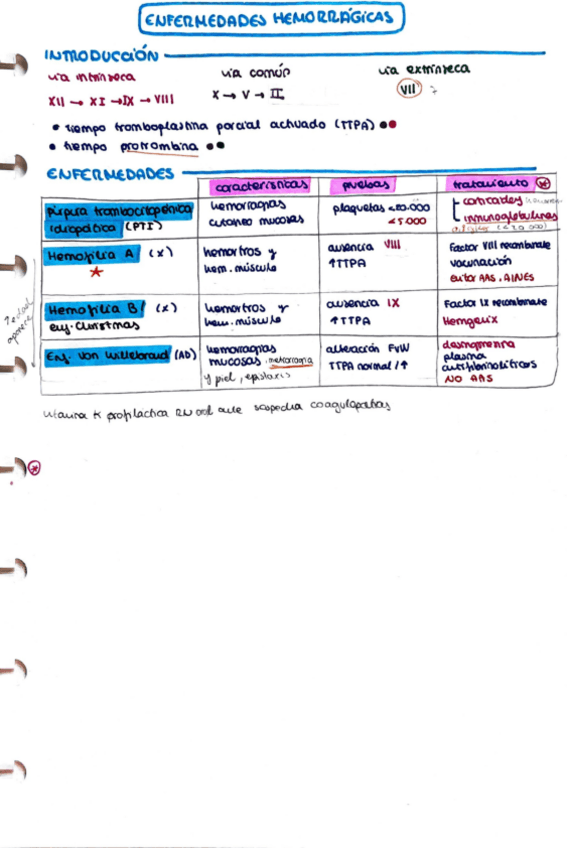 ENFERMEDADES HEMORRÁGICAS
INTRODUCCIÓN
vía intrínseca vía común vía extrínseca
XII → XI → IX → VIII X → V → II VII
• tiempo tromboplastina parcial activado (TTPA)
• tiempo protrombina
ENFERMEDADES
características pruebas tratamiento
púrpura trombocitopénica idiopática (PTI)
hemorragias cutáneo mucosas
plaquetas <20.000
<5.000
corticoides
inmunoglobulinas
Hemofilia A (x)
hemartros y hem. músculo
ausencia VIII
↑TTPA
Factor VIII recombinante
vacunación
evitar AAS, AINES
↑ edad aparece
Hemofilia B (x)
enf. Christmas
hemartros y hem. músculo
ausencia IX
↑TTPA
Factor IX recombinante
Hemgenix
Enf. Von Willebrand (AD)
hemorragias mucosas, metrorragia
y piel, epistaxis
alteración FvW
TTPA normal / ↑
desmopresina
plasma
antifibrinolíticos
NO AAS
profiláctica RN oral ante sospecha coagulopatías